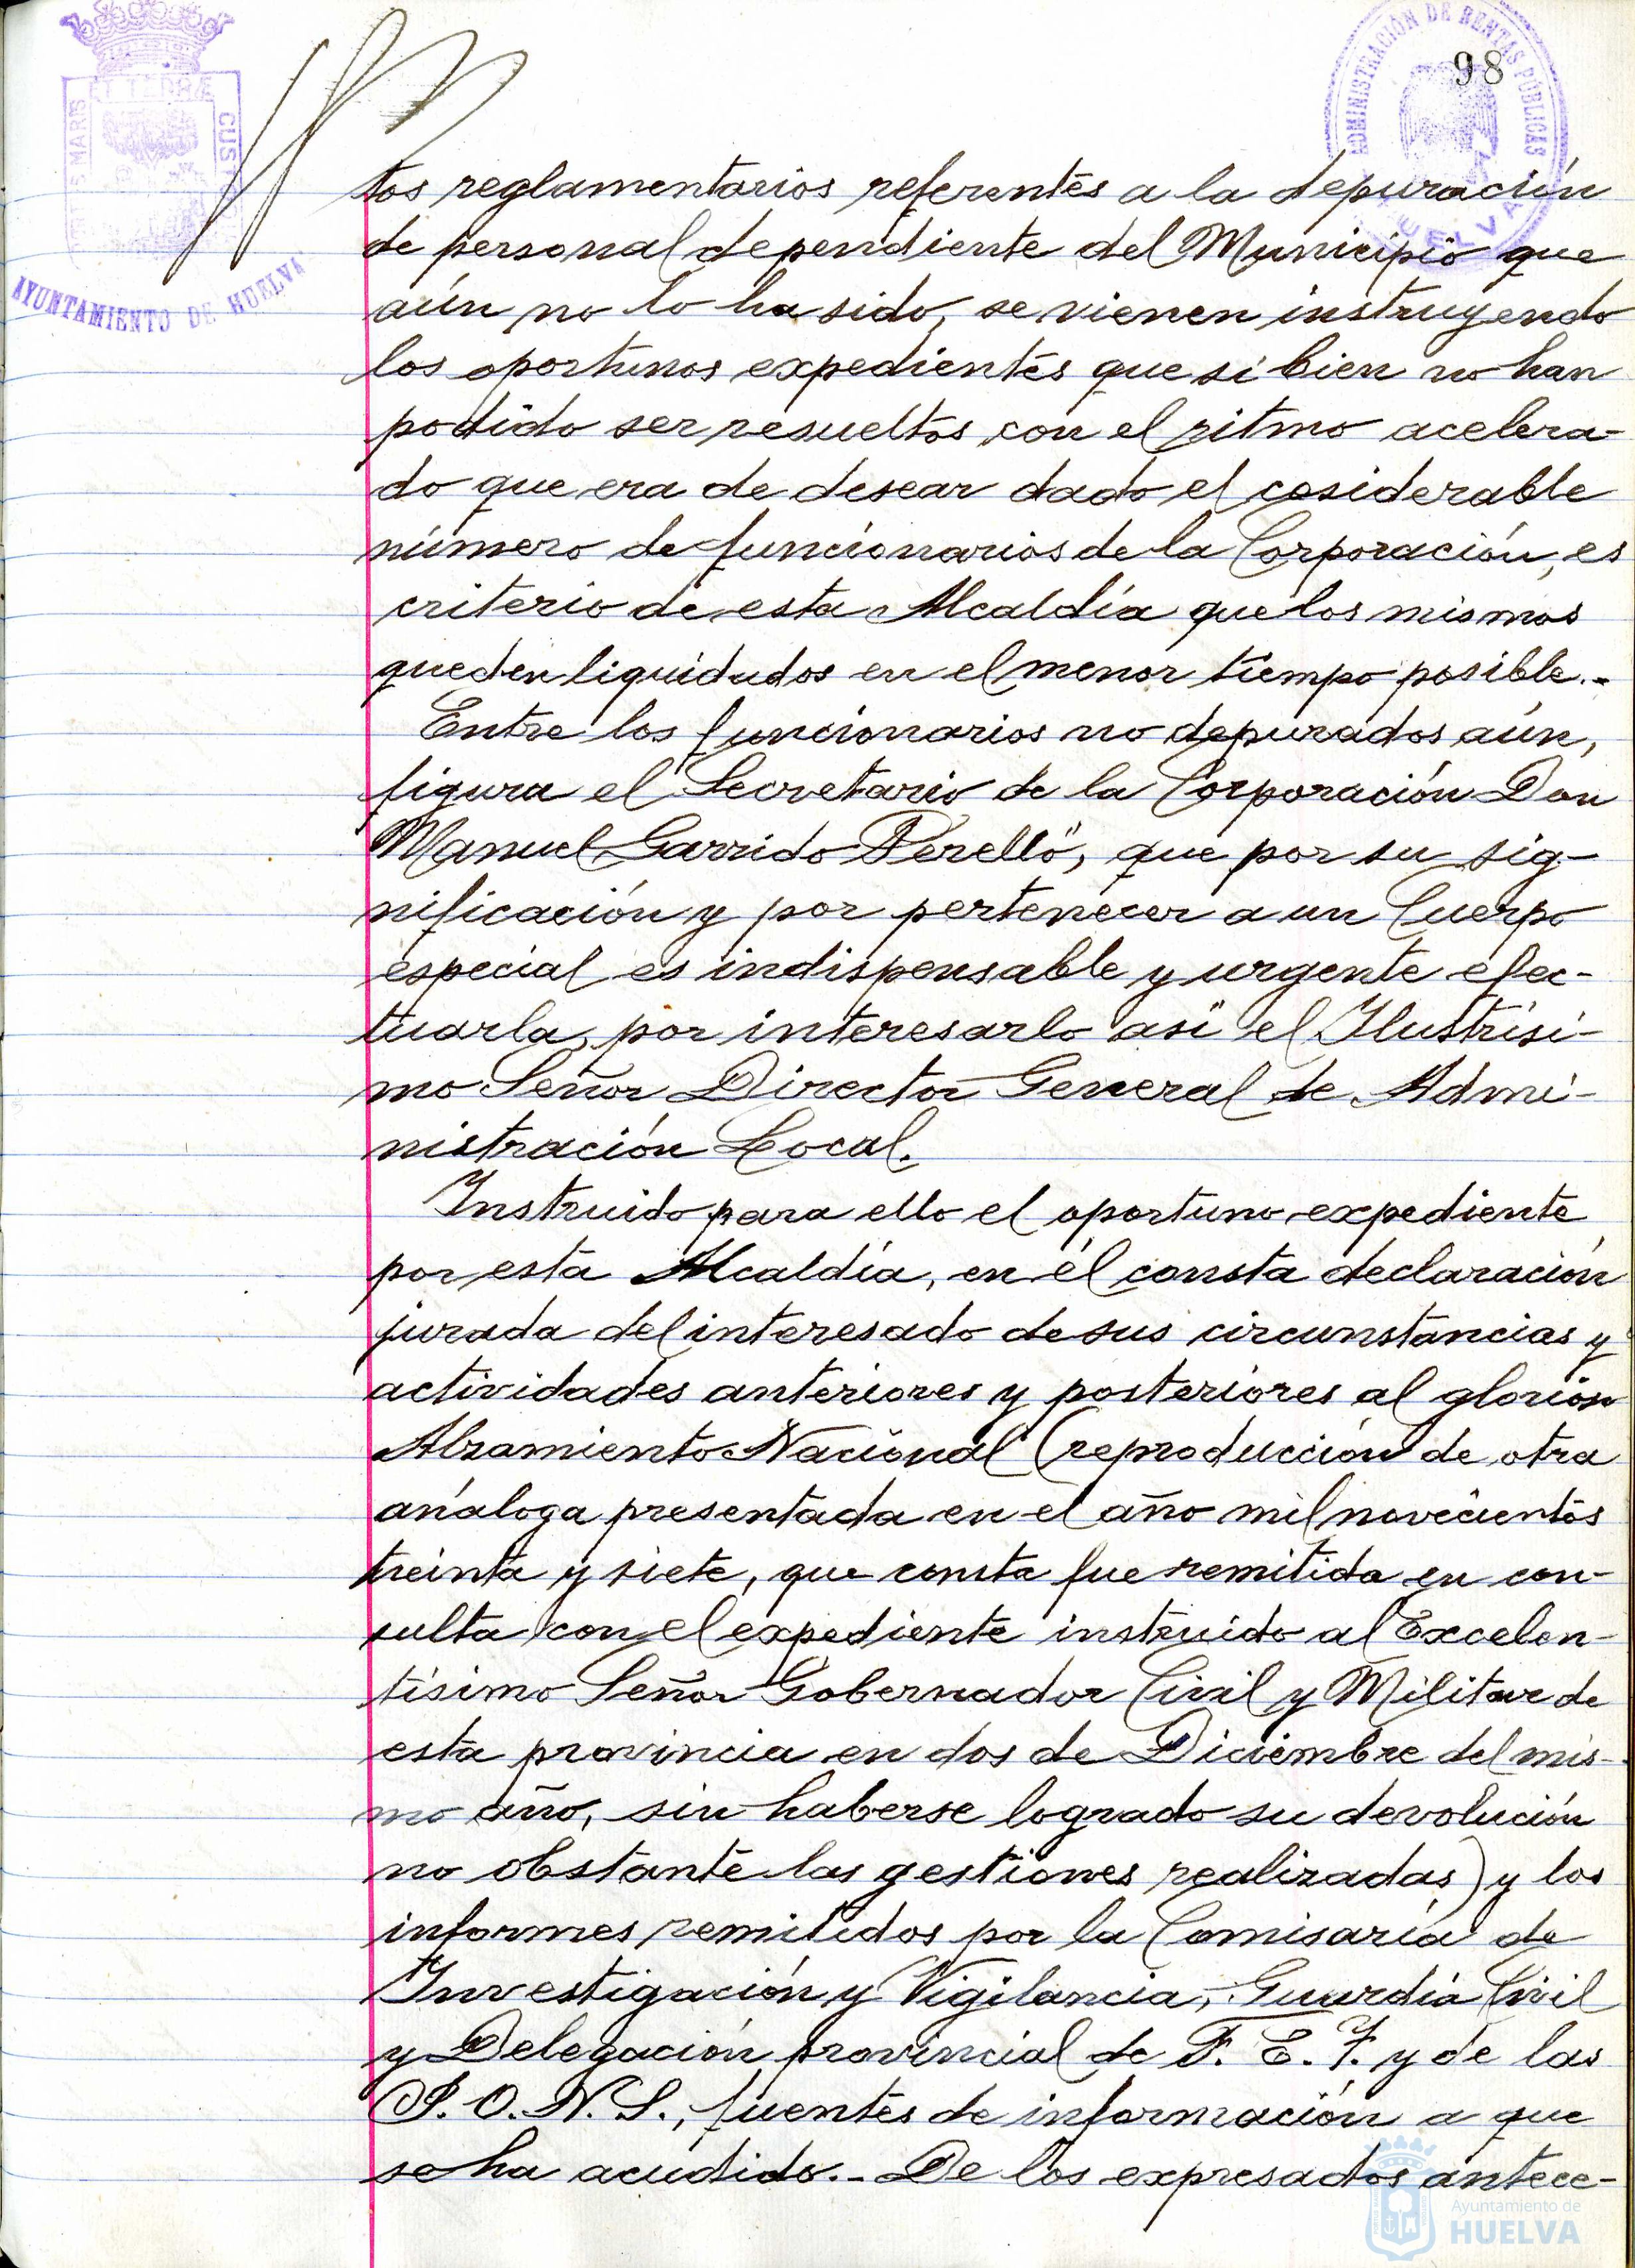 98
ET TERRÆ
S MARIS
CUS
AYUNTAMIENTO DE HUELVA
ADMINISTRACIÓN DE RENTAS PUBLICAS
HUELVA
tos reglamentarios referentes a la depuración
de personal dependiente del Municipio que
aún no lo ha sido, se vienen instruyendo
los oportunos expedientes que si bien no han
podido ser resueltos con el ritmo acelera-
do que era de desear dado el cosiderable
número de funcionarios de la Corporación, es
criterio de esta Alcaldía que los mismos
queden liquidados en el menor tiempo posible.-
Entre los funcionarios no depurados aún,
figura el Secretario de la Corporación Don
Manuel Garrido Perelló, que por su sig-
nificación y por pertenecer a un Cuerpo
especial es indispensable y urgente efec-
tuarla, por interesarlo así el Ilustrísi-
mo Señor Director General de Admi-
nistración Local.
Instruido para ello el oportuno expediente
por esta Alcaldía, en él consta declaración
jurada del interesado de sus circunstancias y
actividades anteriores y posteriores al glorioso
Alzamiento Nacional (reproducción de otra
análoga presentada en el año mil novecientos
treinta y siete, que consta fue remitida en con-
sulta con el expediente instruido al Excelen-
tísimo Señor Gobernador Civil y Militar de
esta provincia en dos de Diciembre del mis-
mo año, sin haberse logrado su devolución
no obstante las gestiones realizadas) y los
informes remitidos por la Comisaría de
Investigación y Vigilancia, Guardia Civil
y Delegación provincial de F. E. T. y de las
J. O. N. S., fuentes de información a que
se ha acudido.- De los expresados antece-
Ayuntamiento de
HUELVA